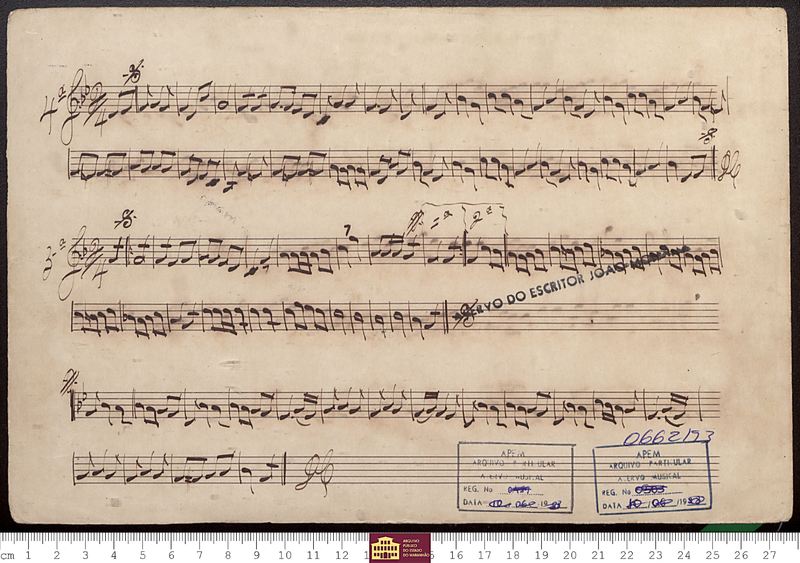 4ª
2
4
D.C.
3ª
2
4
7
1ª 2ª
ACERVO DO ESCRITOR JOÃO MOHANA
D.C.
0662/93
APEM
ARQUIVO PARTICULAR
ACERVO MUSICAL
REG. No
DATA
APEM
ARQUIVO PARTICULAR
ACERVO MUSICAL
REG. No 0503
DATA
cm 1 2 3 4 5 6 7 8 9 10 11 12 13 16 17 18 19 20 21 22 23 24 25 26 27
ARQUIVO
PÚBLICO
DO ESTADO
DO MARANHÃO